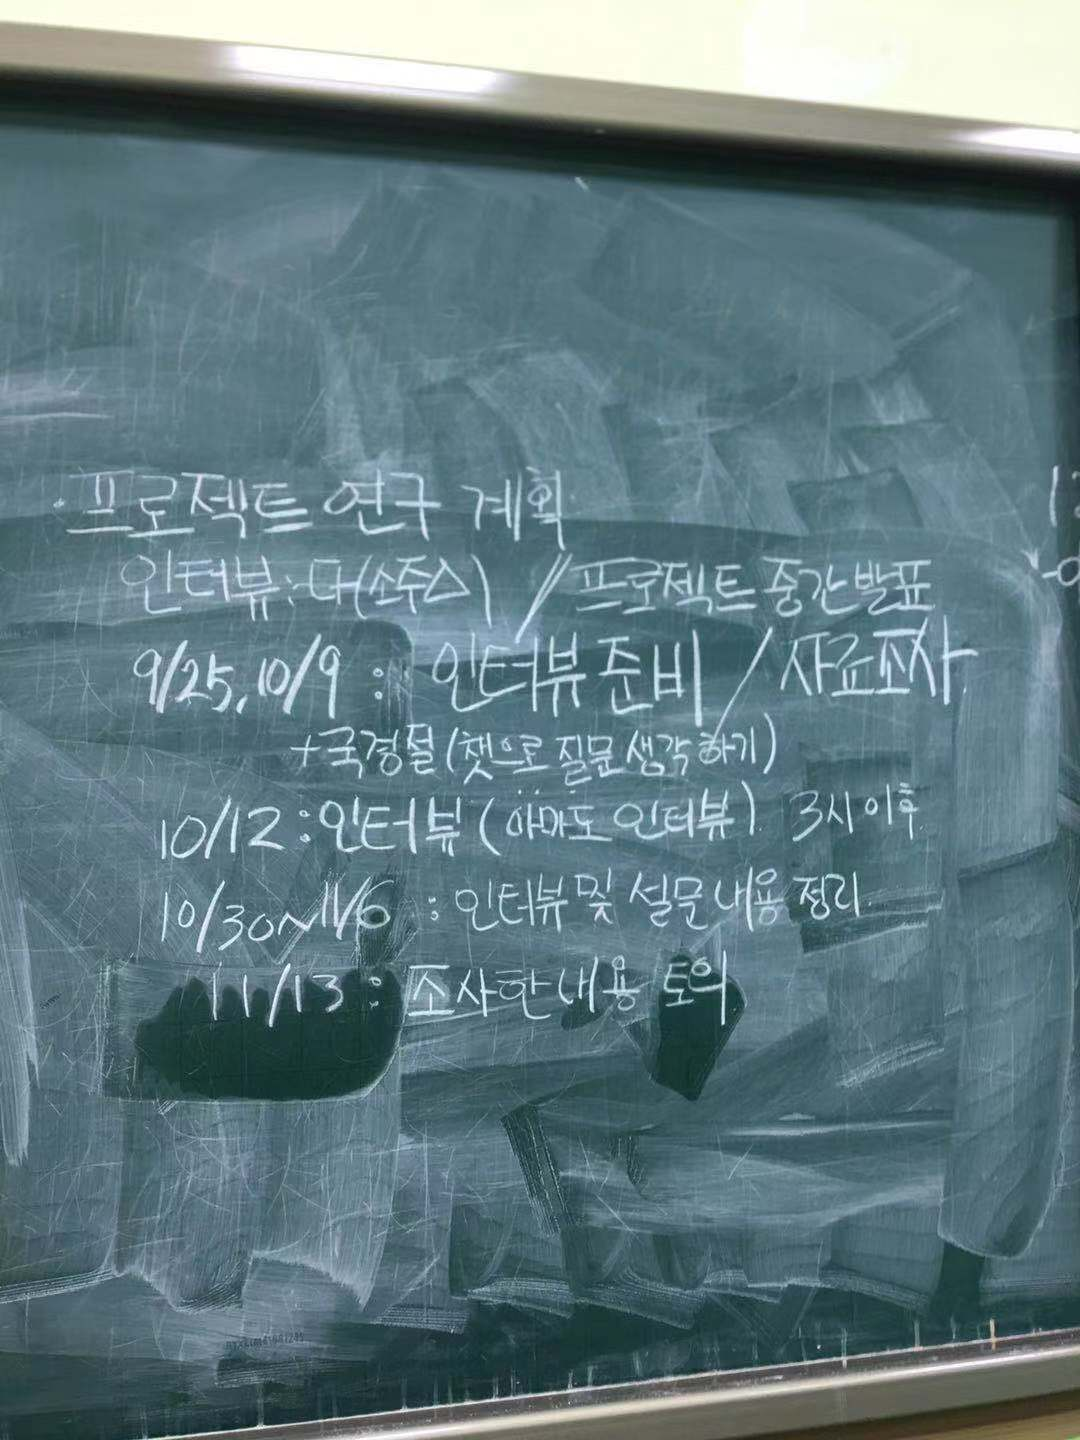 · 프로젝트 연구 계획
인터뷰 : 다(소주스) // 프로젝트 중간발표
9/25, 10/9 : 인터뷰 준비 / 자료조사
+국경절(챗으로 질문 생각하기)
10/12 : 인터뷰 (아마도 인터뷰) 3시 이후
10/30~11/6 : 인터뷰 및 설문 내용 정리.
11/13 : 조사한 내용 토의